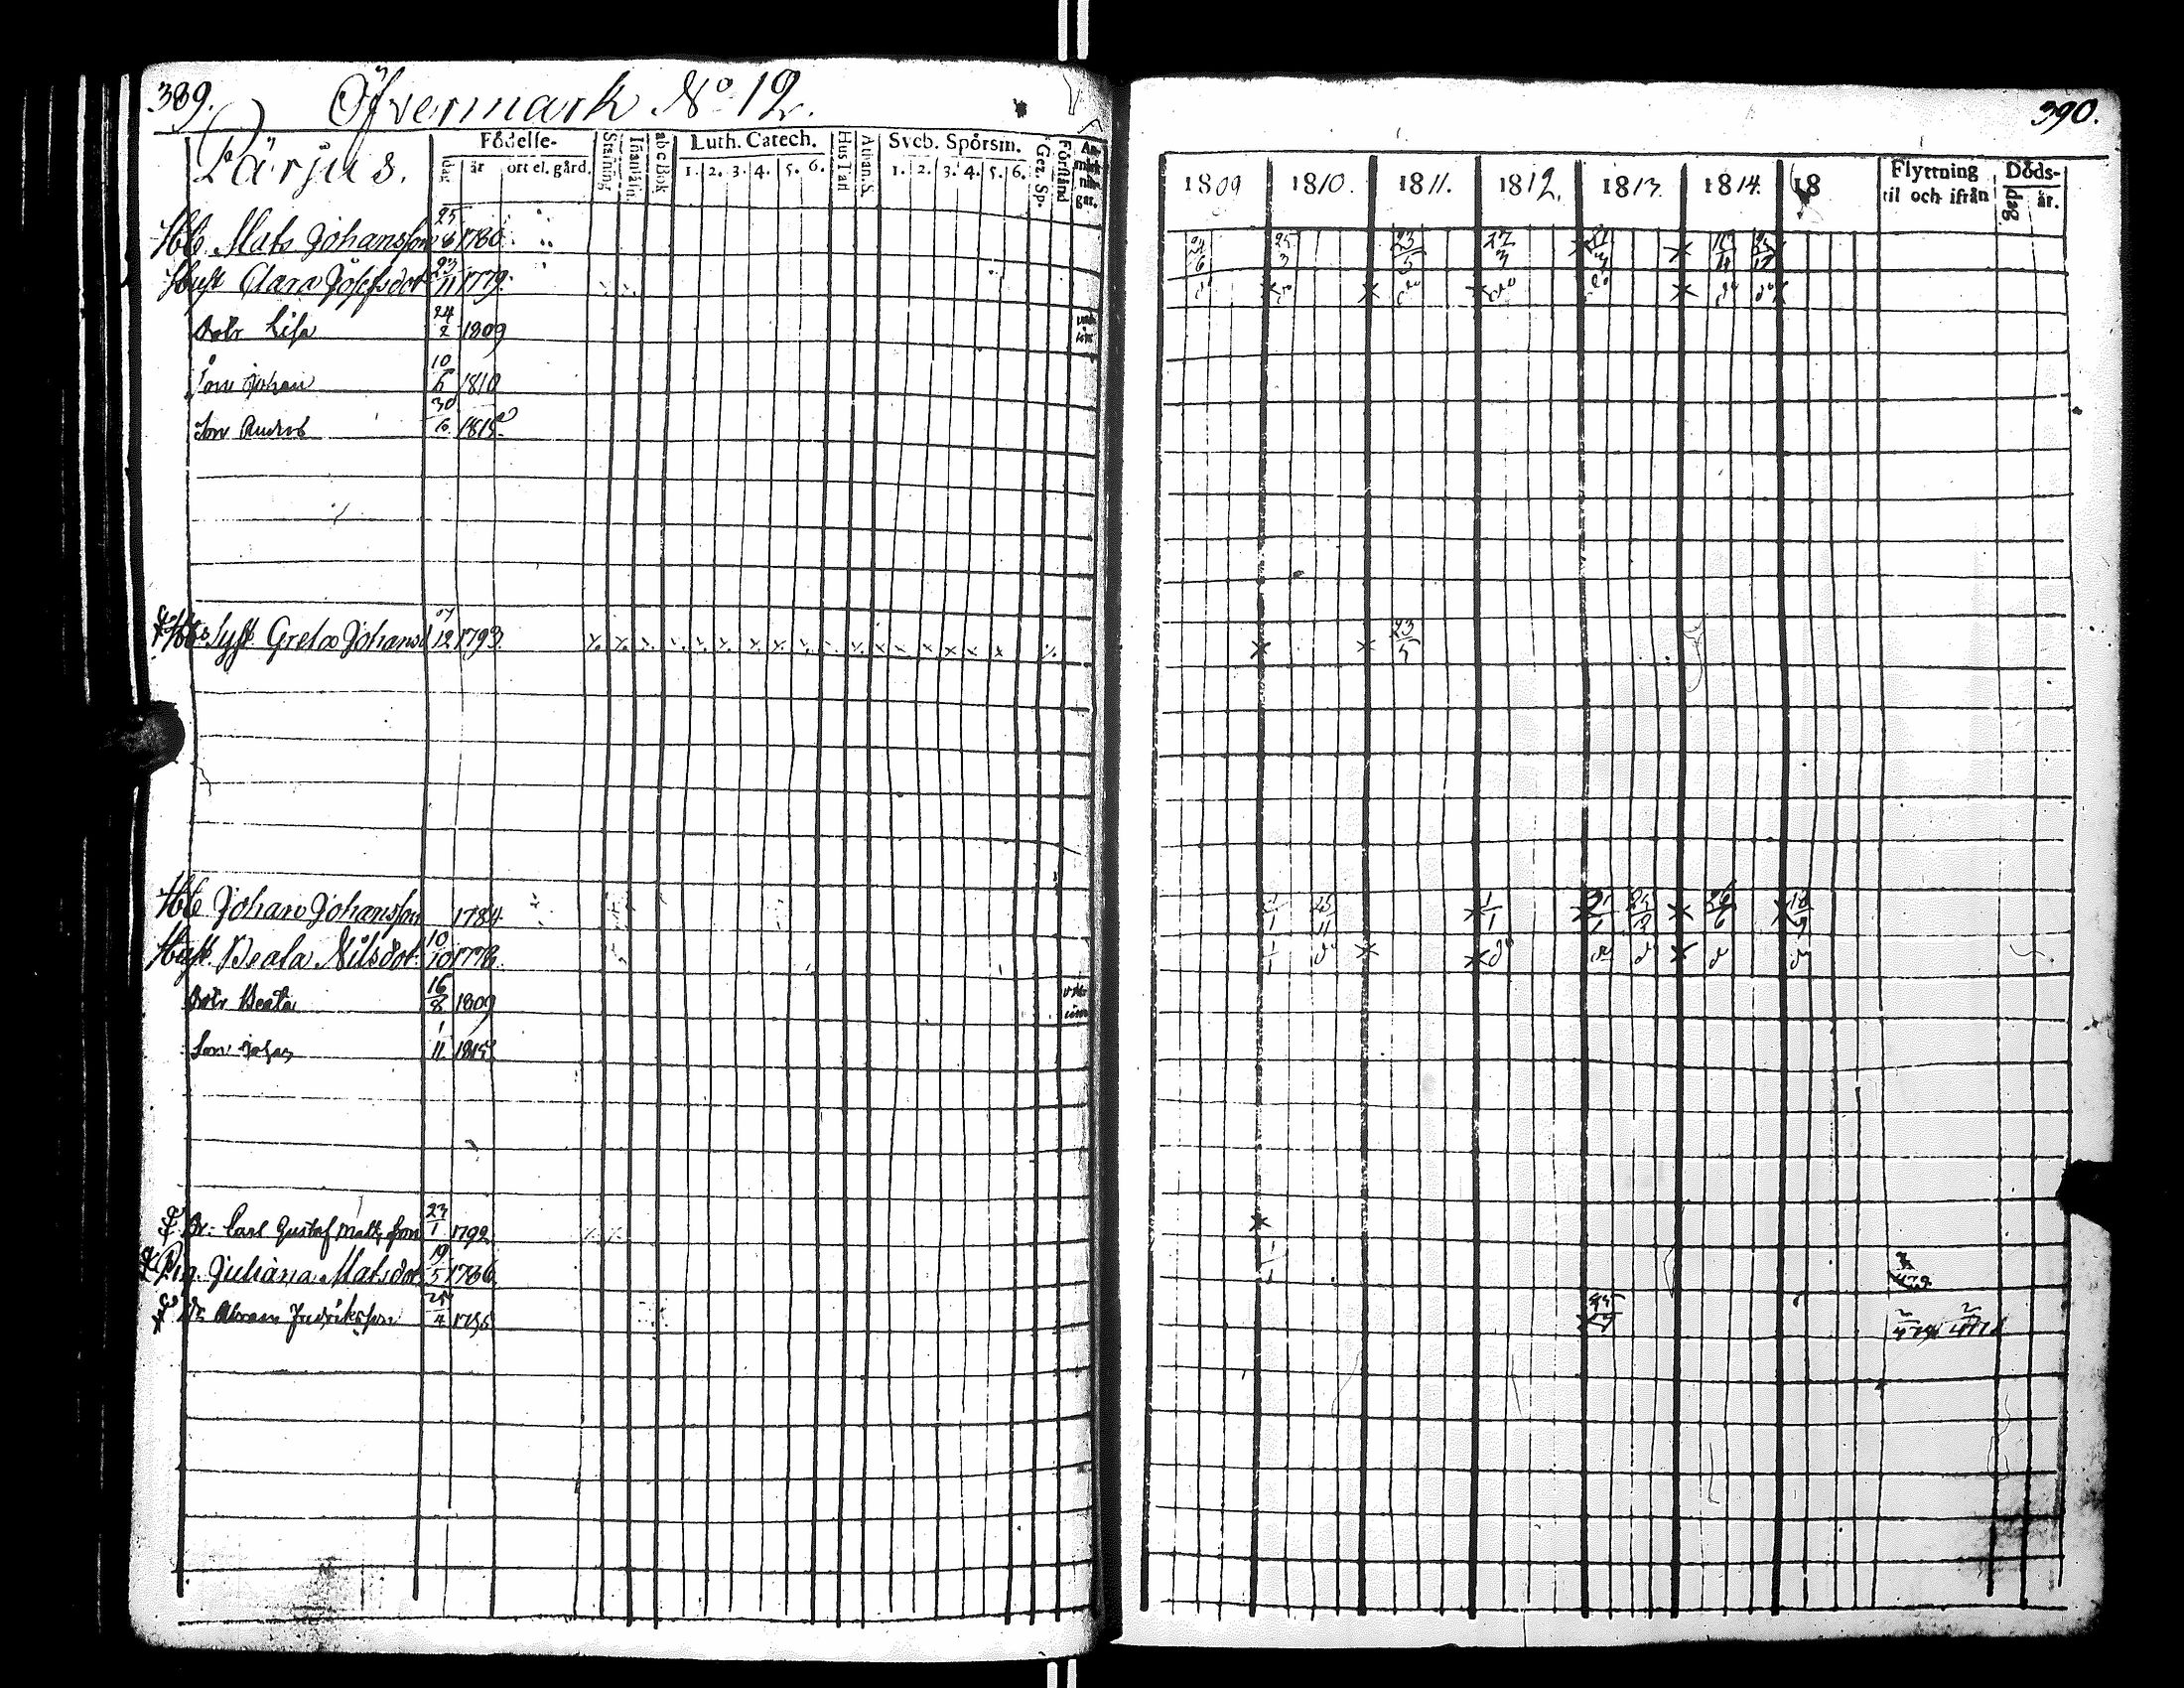 389.
Öfvermark No 12.
Pärjus.
Födelse-
dag år ort el. gård.
Stafning
Innanläsn.
abc Bok
Luth. Catech.
1. 2. 3. 4. 5. 6.
Hus Tafl
Athan. S.
Sveb. Spörsm.
1. 2. 3. 4. 5. 6.
Gez. Sp.
Förstånd
An-
märk-
nin-
gar.
Hb Mats Johansson 25/8 1780
Hust Clara Josefsdot 23/11 1779.
Dotr Lisa 24/2 1809
Son Johan 10/5 1810
Son Anders 30/6 1812
Syst. Greta Johansd 12 1793.
Hb Johan Johansson 1784
Hust. Beata Nilsdot 10/10 1778
Dotr Beata 16/8 1809
Son Johan 1/11 1812
Dr. Carl Gustaf Mattsson 23/1 1792
Pig. Juliana Matsdot 19/5 1786
Dr Abram Fredriksson 25/4 1795
390.
1809 1810. 1811. 1812. 1813. 1814. 18
Flyttning
til och ifrån
Döds-
dag år.
24/6 25/3 23/5 27/3
do do do do do do
23/5
1/1 25/11 1/1 21/1 26/6 18/9
1/1 do do do do do do
1/1